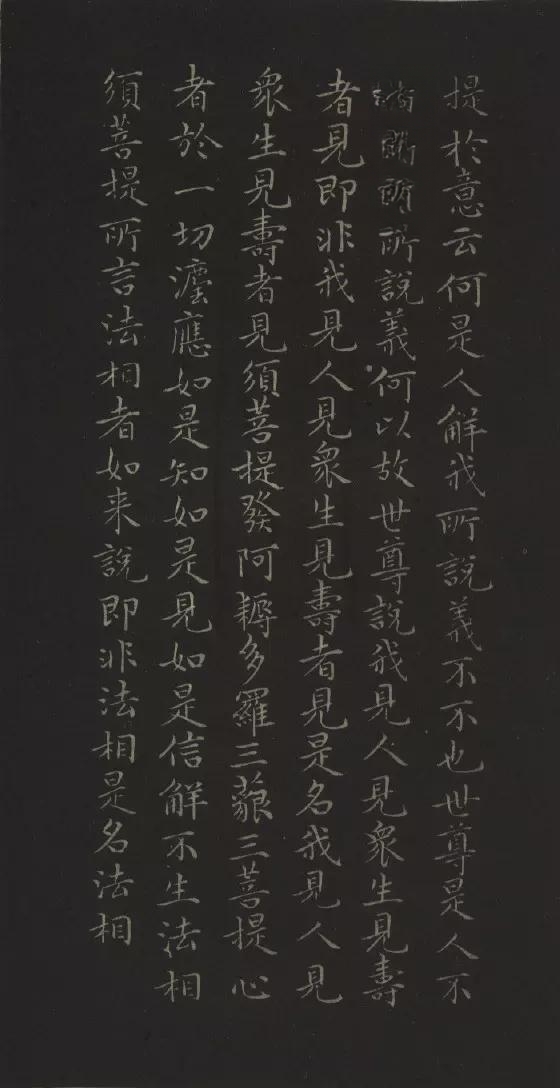 提於意云何是人解我所說義不不也世尊是人不
所說義何以故世尊說我見人見衆生見壽
者見即非我見人見衆生見壽者見是名我見人見
衆生見壽者見須菩提發阿耨多羅三藐三菩提心
者於一切灋應如是知如是見如是信解不生法相
須菩提所言法相者如来說即非法相是名法相